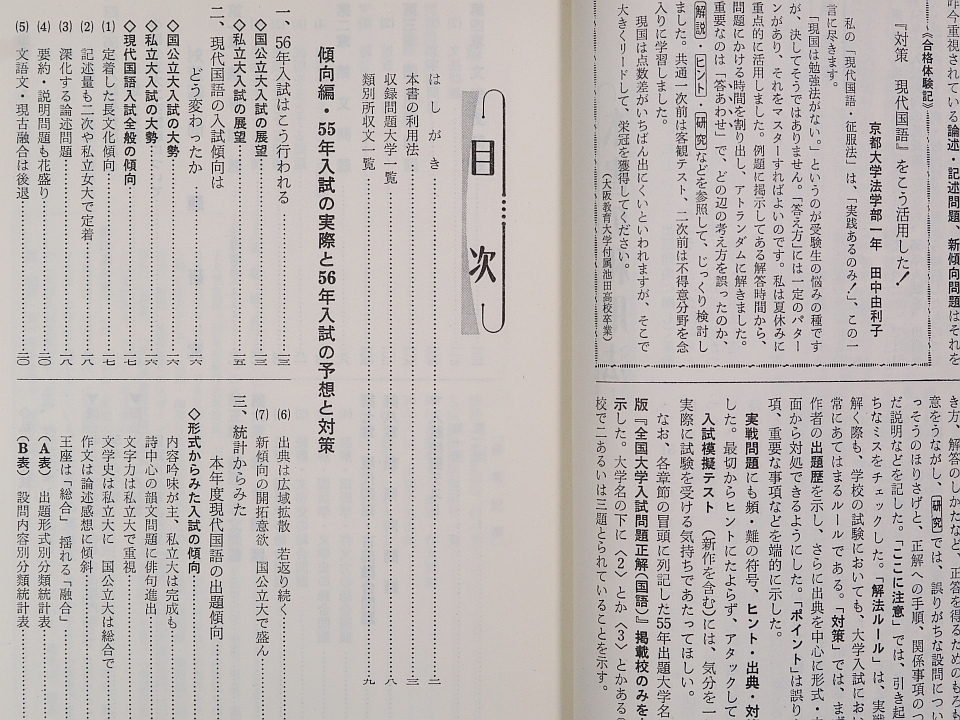 昨今重視されている論述・記述問題、新傾向問題はそれを
《合格体験記》
『対策　現代国語』をこう活用した！
京都大学法学部一年　田中由利子
私の「現代国語・征服法」は、「実践あるのみ！」、この一
言に尽きます。
「現国は勉強法がない。」というのが受験生の悩みの種です
が、決してそうではありません。「答え方」には一定のパター
ンがあり、それをマスターすればよいのです。私は夏休みに
重点的に活用しました。例題に掲示してある解答時間から、
問題にかける時間を割り出し、アトランダムに解きました。
重要なのは「答あわせ」で、どの辺の考え方を誤ったのか、
解説・ヒント・研究などを参照して、じっくり検討し
ました。共通一次前は客観テスト、二次前は不得意分野を念
入りに学習しました。
現国は点数差がいちばん出にくいといわれますが、そこで
大きくリードして、栄冠を獲得してください。
（大阪教育大学付属池田高校卒業）
き方、解答のしかたなど、正答を得るためのもろも
意をうながし、研究では、誤りがちな設問につい
っそうのほりさげと、正解への手順、関係事項のつ
だ説明などを記した。「ここに注意」では、引き起
ちなミスをチェックした。「解法ルール」は、実戦
解く際も、学校の試験においても、大学入試におい
常にあてはまるルールである。「対策」では、まず
作者の出題歴を示し、さらに出典を中心に形式・
面から対処できるようにした。「ポイント」は誤り
項、重要な事項などを端的に示した。
実戦問題にも頻・難の符号、ヒント・出典・対
した。最初からヒントにたよらず、アタックして
入試模擬テスト（新作を含む）には、気分を一
実際に試験を受ける気持ちであたってほしい。
なお、各章節の冒頭に列記した55年出題大学名
版『全国大学入試問題正解(国語)』掲載校のみを
示した。大学名の下に〈2〉とか〈3〉とかある
校で二あるいは三題とられていることを示す。
目……次
はしがき……二
本書の利用法……三
収録問題大学一覧……八
類別所収文一覧……九
傾向編・55年入試の実際と56年入試の予想と対策
一、56年入試はこう行われる……一三
◇国公立大入試の展望……一三
◇私立大入試の展望……一五
二、現代国語の入試傾向は
どう変わったか……一六
◇国公立大入試の大勢……一六
◇私立大入試の大勢……一六
◇現代国語入試全般の傾向……一七
(1)　定着した長文化傾向……一七
(2)　記述量も二次や私立女大で定着……一八
(3)　深化する論述問題……一八
(4)　要約・説明問題も花盛り……二〇
(5)　文語文・現古融合は後退……二〇
(6)　出典は広域拡散　若返り続く……
(7)　新傾向の開拓意欲　国公立大で盛ん
三、統計からみた
本年度現代国語の出題傾向……
◇形式からみた入試の傾向……
内容吟味が主、私立大は完成も
詩中心の韻文問題に俳句進出……
文字力は私立大で重視……
文学史は私立大に　国公立大は総合で
作文は論述感想に傾斜……
王座は「総合」　揺れる「融合」……
（A表）　出題形式別分類統計表……
（B表）　設問内容別分類統計表……